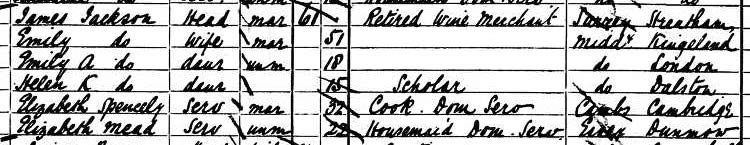 James Jackson Head mar 61 Retired Wine Merchant Surrey Streatham
Emily do Wife mar 51 Middx Kingsland
Emily A do daur unm 18 do London
Helen K do daur 15 Scholar do Dalston
Elizabeth Spencely Serv mar 32 Cook Dom Serv Cambs Cambridge
Elizabeth Mead Serv unm 22 Housemaid Dom Serv Essex Dunmow